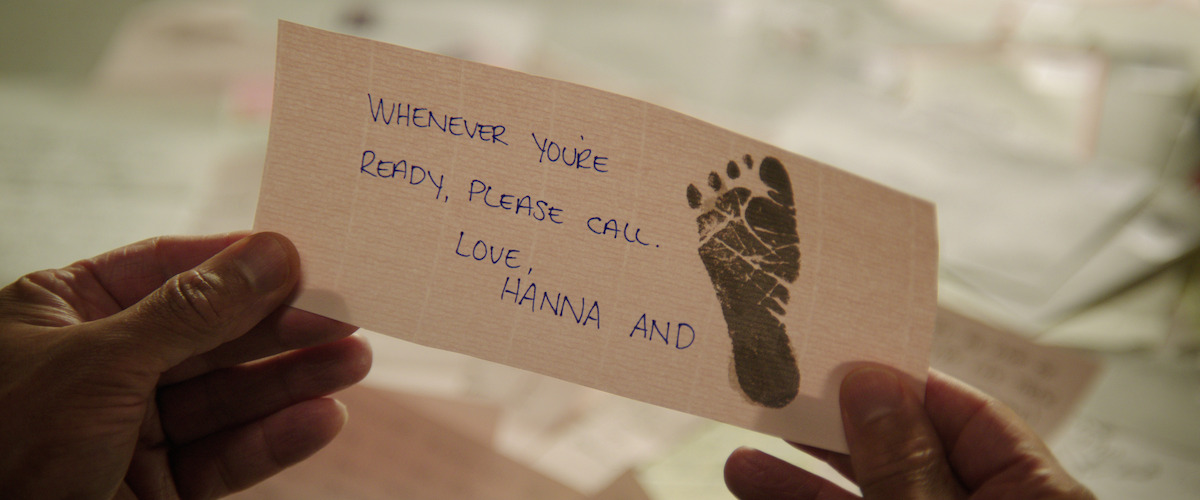 WHENEVER YOU'RE
READY, PLEASE CALL.
LOVE,
HANNA AND